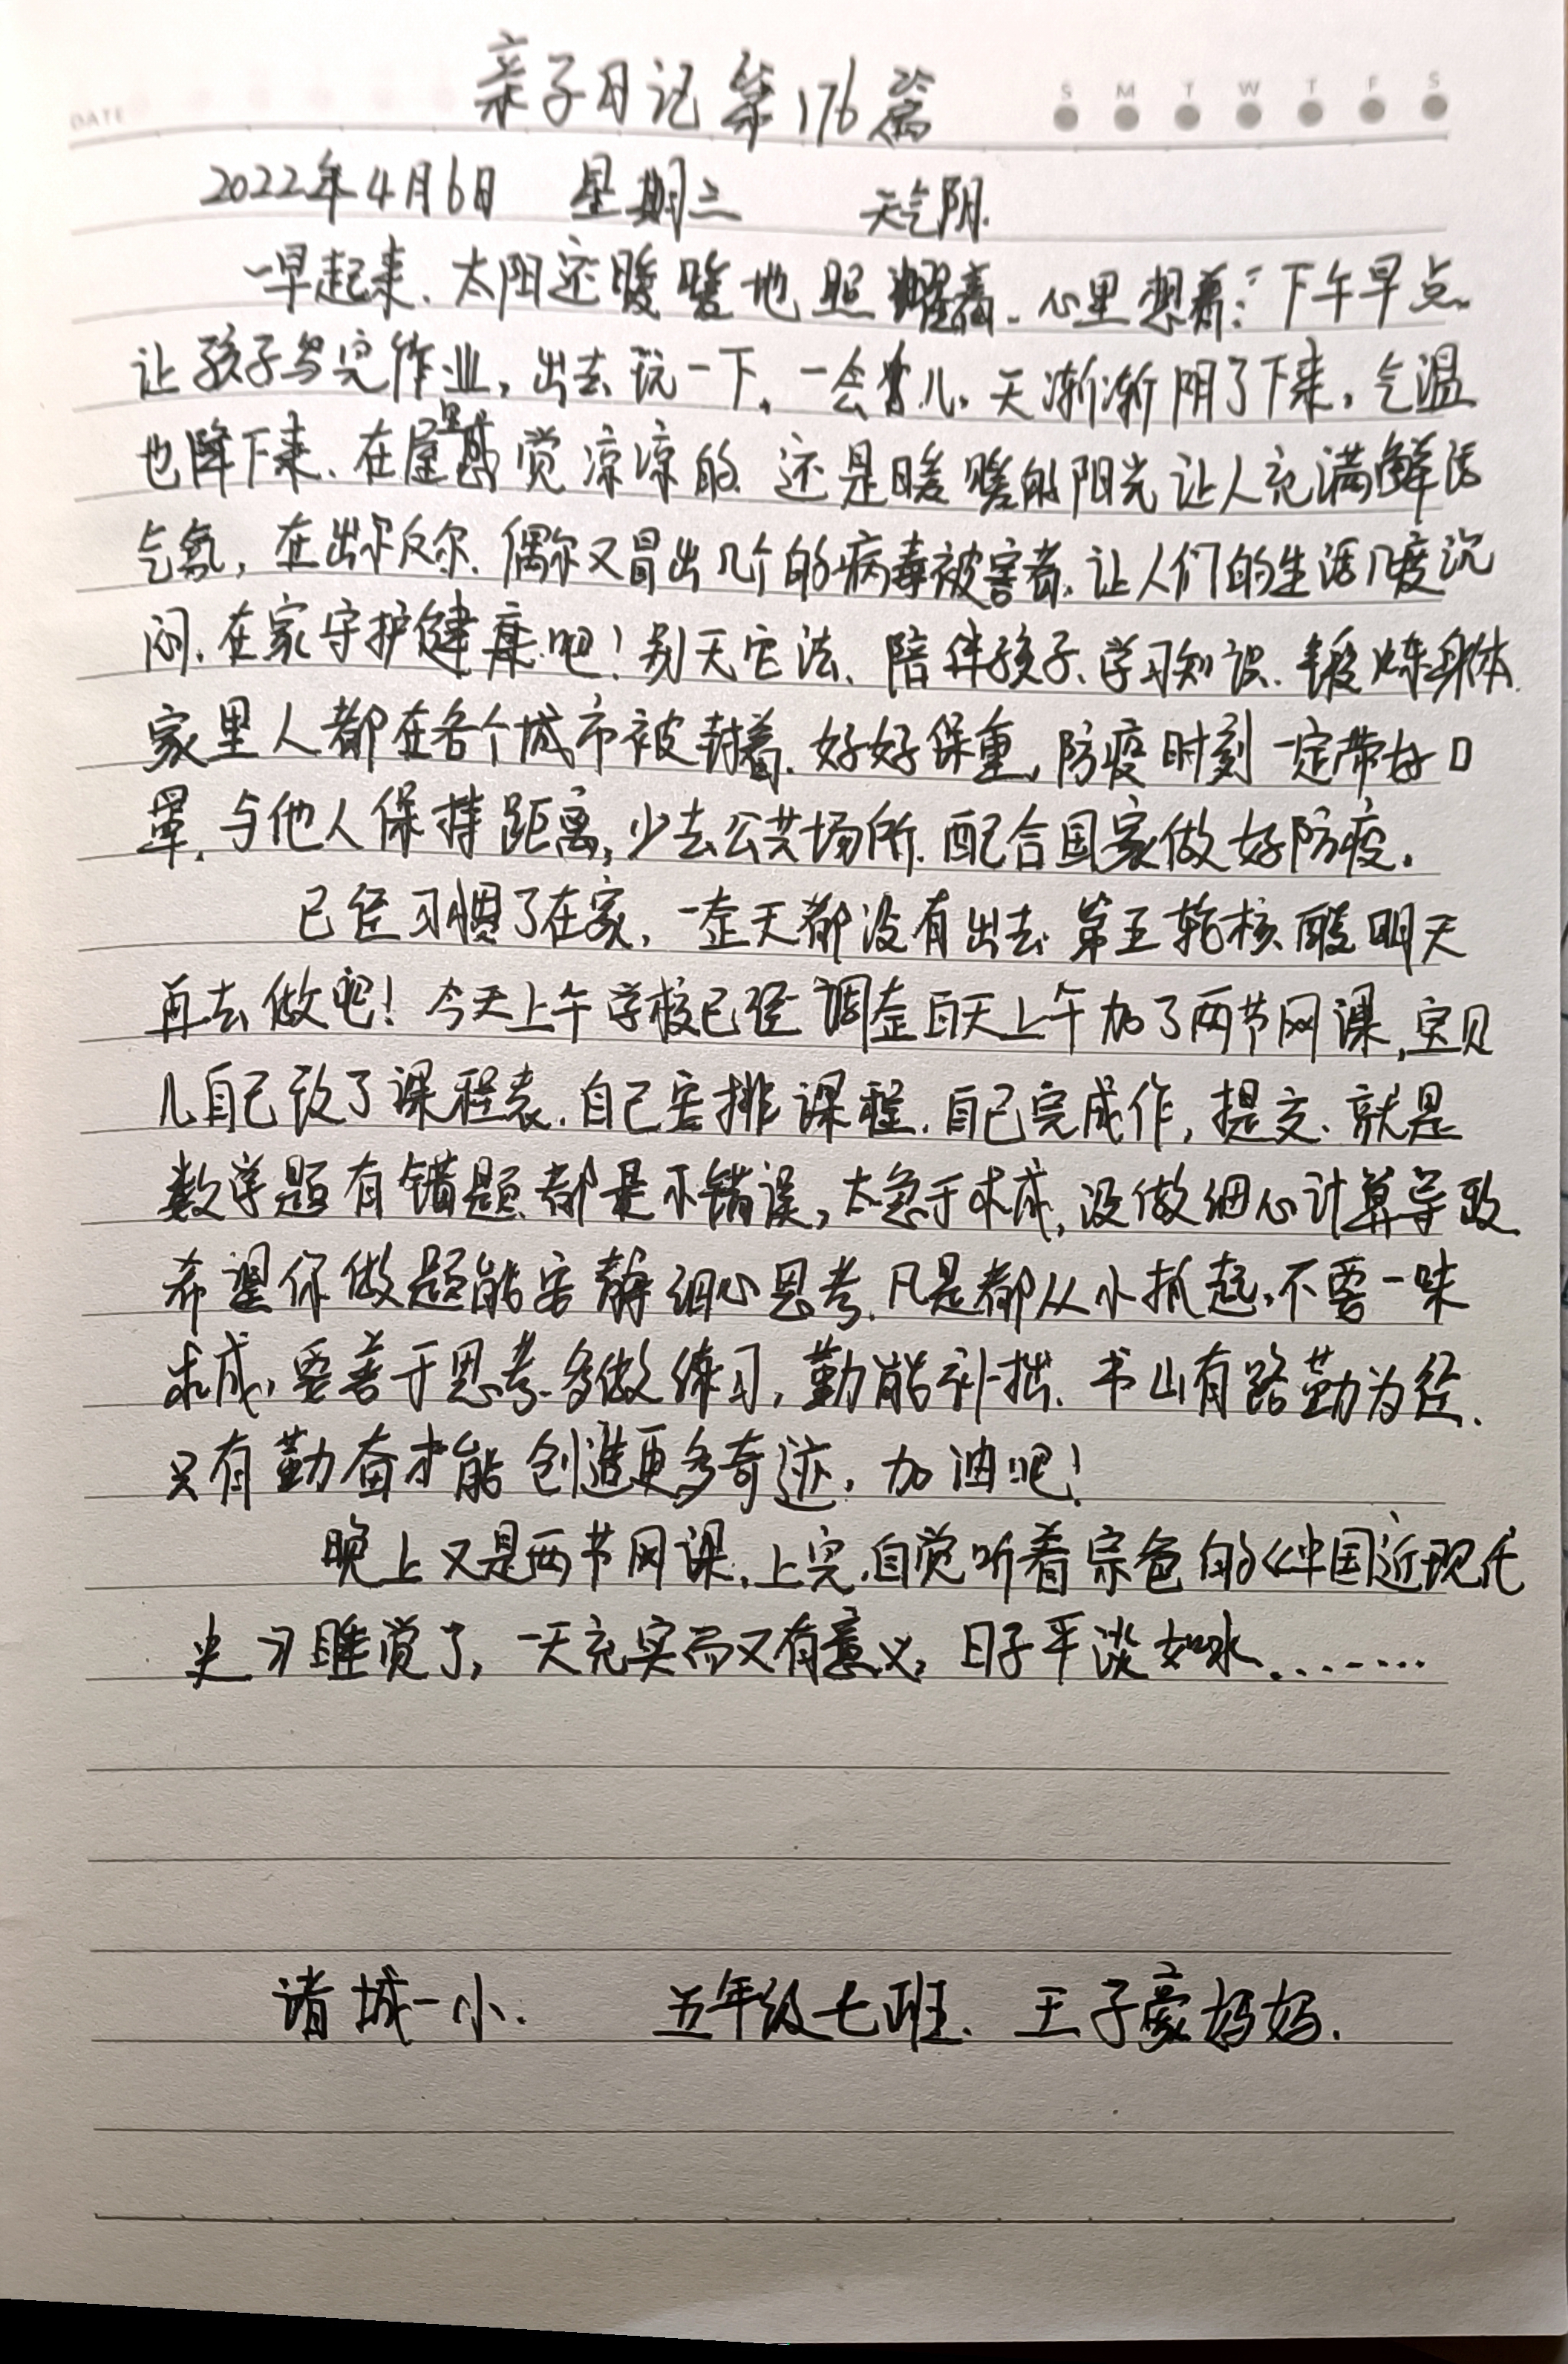 亲子日记第176篇
DATE S M T W T F S
2022年4月6日 星期三 天气阴.
一早起来、太阳还暖暖地照耀着、心里想着:下午早点
让孩子写完作业,出去玩一下。一会儿,天渐渐阴了下来,气温
也降下来、在屋里感觉凉凉的、还是暖暖的阳光让人充满鲜活
气氛,在出尔反尔、偶尔又冒出几个的病毒被害者、让人们的生活几度沉
闷、在家守护健康吧!别无它法、陪伴孩子、学习知识、锻炼身体
家里人都在各个城市被封着、好好保重,防疫时刻一定带好口
罩、与他人保持距离,少去公共场所、配合国家做好防疫。
已经习惯了在家,一整天都没有出去、第五轮核酸明天
再去做吧!今天上午学校已经调整白天上午加了两节网课,宝贝
儿自己改了课程表、自己安排课程、自己完成作,提交、就是
数学题有错题、都是小错误,太急于求成,没做细心计算导致
希望你做题能安静细心思考、凡是都从小抓起,不要一味
求成,要善于思考、多做练习,勤能补拙、书山有路勤为径、
只有勤奋才能创造更多奇迹,加油吧!
晚上又是两节网课、上完、自觉听着 的《中国近现代
史》睡觉了,一天充实而又有意义,日子平淡如水........
诸城一小. 五年级七班. 王子豪妈妈.